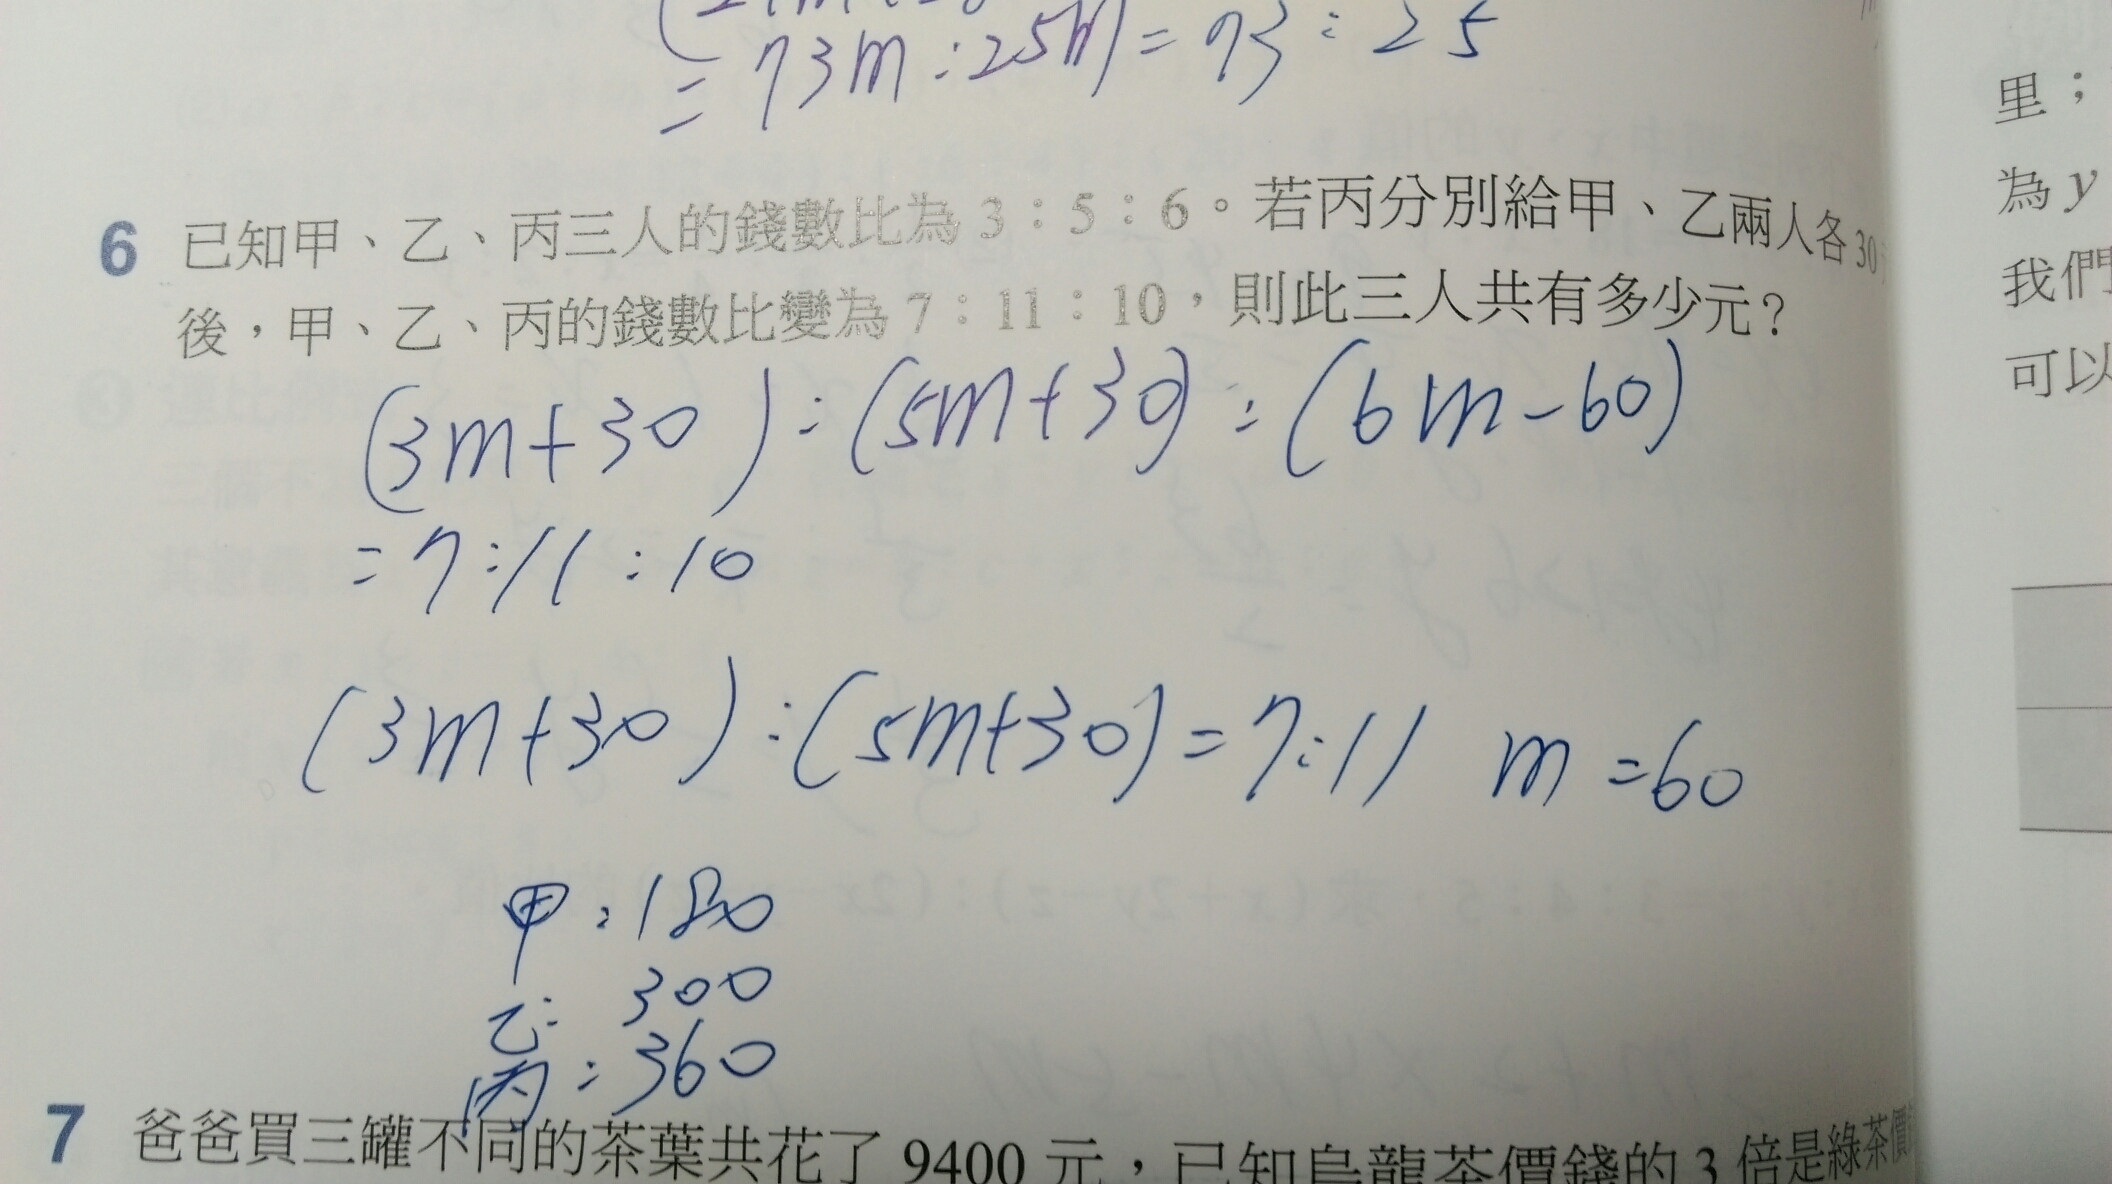 = 73m : 25m = 73 : 25
6 已知甲、乙、丙三人的錢數比為 3：5：6。若丙分別給甲、乙兩人各 30
後，甲、乙、丙的錢數比變為 7：11：10，則此三人共有多少元？
(3m+30) : (5m+30) : (6m-60)
= 7 : 11 : 10
(3m+30) : (5m+30) = 7 : 11 m = 60
甲 : 180
乙 : 300
丙 : 360
7 爸爸買三罐不同的茶葉共花了 9400 元，已知烏龍茶價錢的 3 倍是綠茶價
里；
為 y
我們
可以